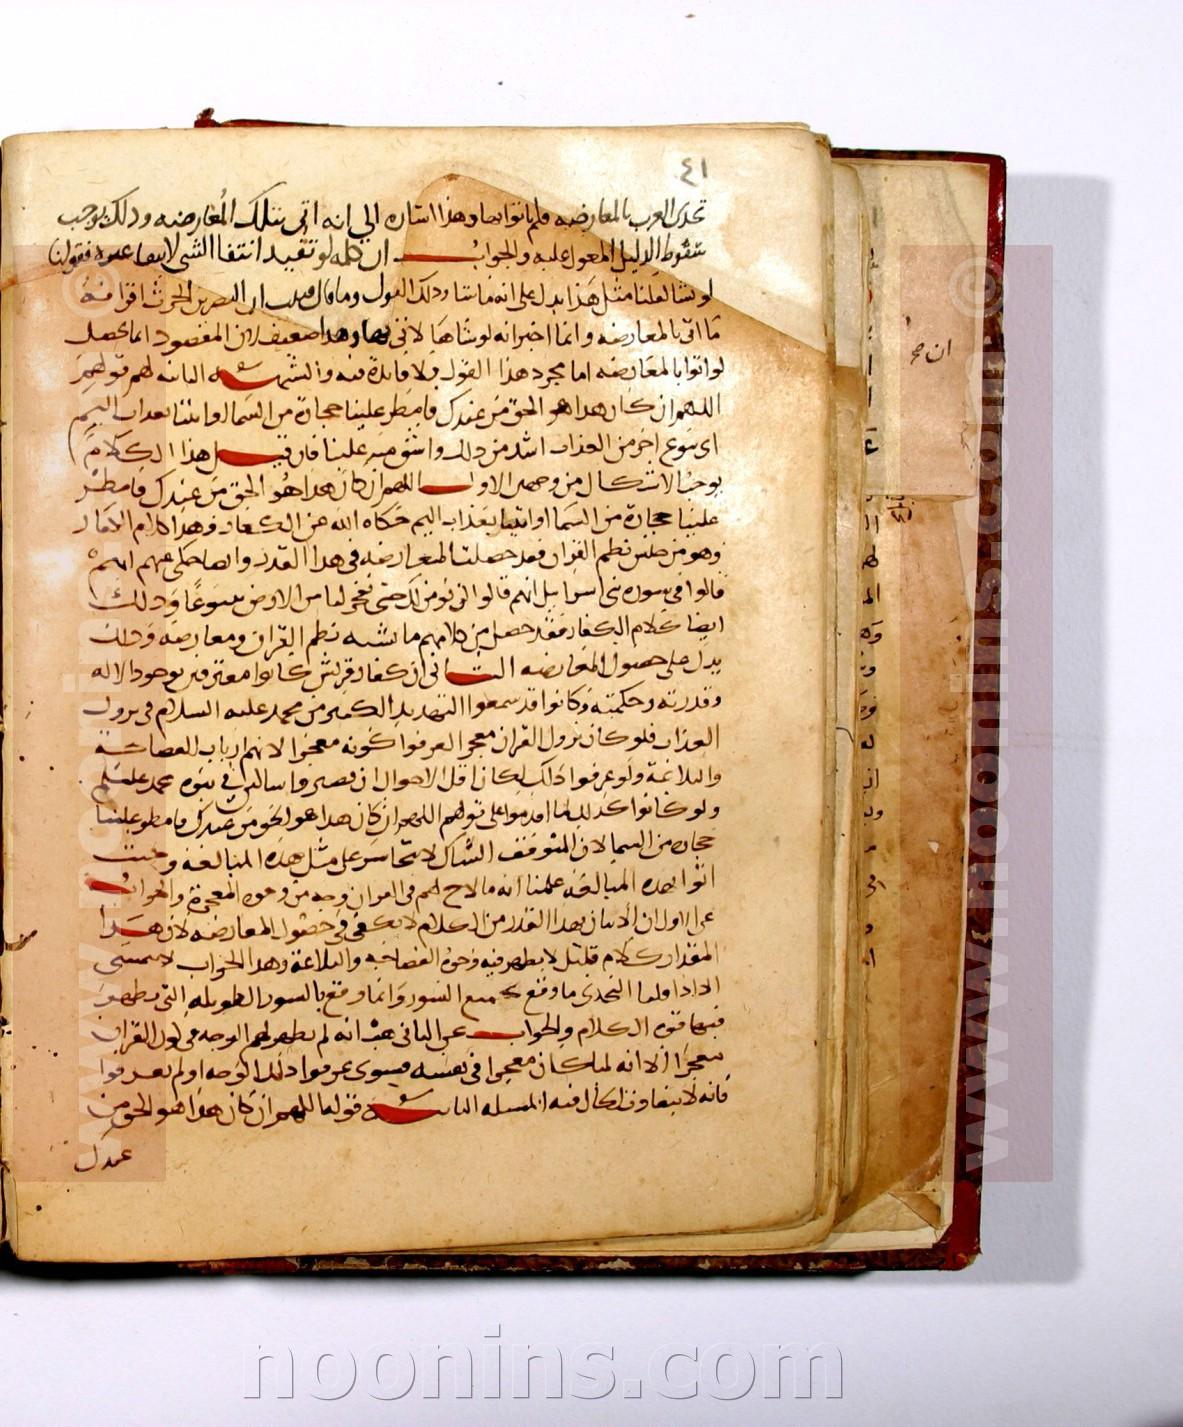 ٤١
تحدى العرب بالمعارضه فلم ياتوا بها وهذا اشاره الى انه اتى بتلك المعارضه وذلك يوجب
سقوط الدليل المعول عليه والجواب ان كلمه لو تفيد انتفا الشى لانتفا غيره فقولنا
لو نشا لقلنا مثل هذا يدل على انه ما شا ذلك القول وما قال فثبت ان النضر بن الحرث اقر انه
ما اتى بالمعارضه وانما اخبر انه لو شاها لاتى بها وهذا ضعيف لان المقصود انما يحصل
لو اتوا بالمعارضه اما مجرد هذا القول فلا فائدة فيه والشبهه الثانيه لهم قولهم
اللهم ان كان هذا هو الحق من عندك فامطر علينا حجارة من السما او ائتنا بعذاب اليم
اى بنوع اخر من العذاب اشد من ذلك واشق منه علينا فان قيل هذا الكلام
يوجب الاشكال من وجهين الاول اللهم ان كان هذا هو الحق من عندك فامطر
علينا حجارة من السما او ائتنا بعذاب اليم حكاه الله عن الكفار وهذا كلام الكفار
وهو من جنس نظم القران فقد حصلت المعارضه فى هذا القدر وايضا حكى عنهم انهم
قالوا فى سوره بنى اسرايل انهم قالوا لن نومن لك حتى تفجر لنا من الارض ينبوعا وذلك
ايضا كلام الكفار فقد حصل من كلامهم ما يشبه نظم القران ومعارضه وذلك
يدل على حصول المعارضه الثانى ان كفار قريش كانوا معترفين بوجود الاله
وقدرته وحكمته وكانوا قد سمعوا التهديد الكثير من محمد عليه السلام فى نزول
العذاب فلو كان نزول القران معجزا لعرفوا كونه معجزا لانهم ارباب الفصاحة
والبلاغة ولو عرفوا ذلك لكان اقل الاحوال ان يصيروا شاكين فى نبوه محمد عليه السلم
ولو كانوا كذلك لما اقدموا على قولهم اللهم ان كان هذا هو الحق من عندك فامطر علينا
حجاره من السما لان المتوقف الشاك لا يتجاسر على مثل هذه المبالغه وحيث
اتوا بهذه المبالغه علمنا انه ما لاح لهم فى القران وجه من وجوه المعجزة والجواب
عن الاول ان الاتيان بهذا القدر من الكلام لا يكفى فى حصول المعارضه لان هذا
المقدار كلام قليل لا يظهر فيه وجوه الفصاحه والبلاغة وهذا الجواب لا يتمشى
الا اذا قلنا التحدى ما وقع بجميع السور وانما وقع بالسور الطويله التى يظهر
فيها قوه الكلام والجواب عن الثانى هب انه لم يظهر لهم الوجه فى كون القران
معجزا الا انه لما كان معجزا فى نفسه فسوى عرفوا ذلك الوجه او لم يعرفوا
فانه لا يتفاوت الحال فيه المسله الثانيه قوله اللهم ان كان هذا هو الحق من
عندك
ان صح
noonins.com
www.noonins.com ©
www.noonins.com ©